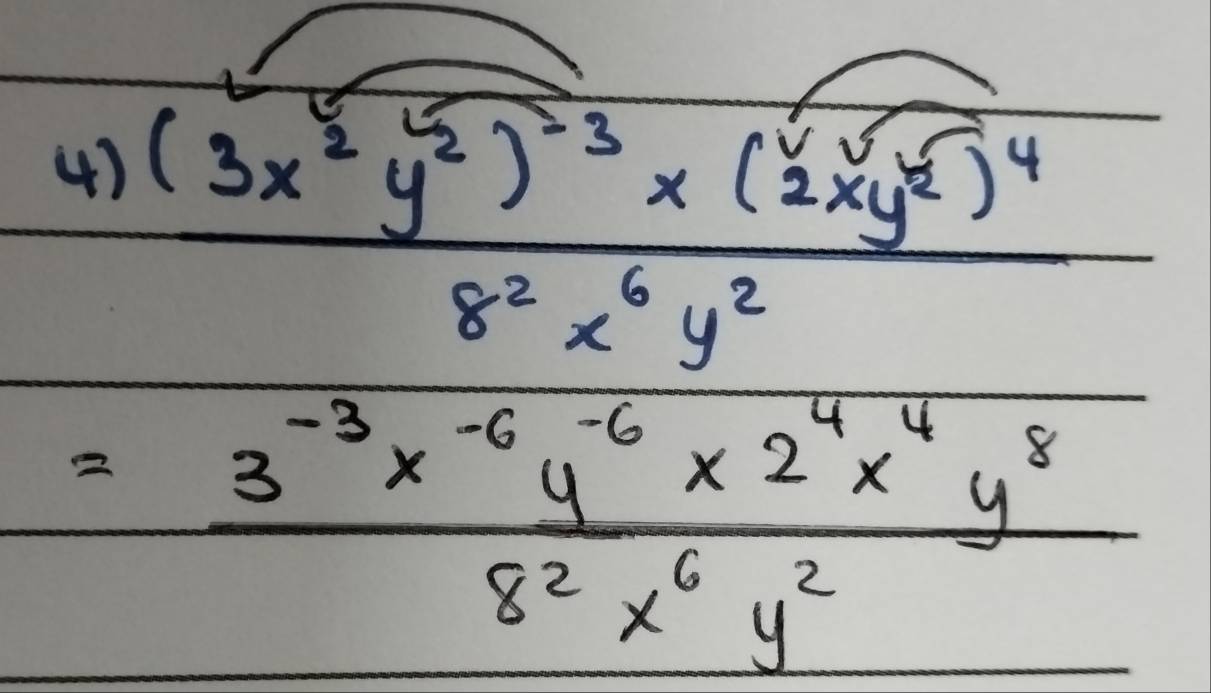 4) (3x²y²)⁻³ x (2xy²)⁴
8² x⁶ y²
= 3⁻³ x⁻⁶ y⁻⁶ x 2⁴ x⁴ y⁸
8² x⁶ y²